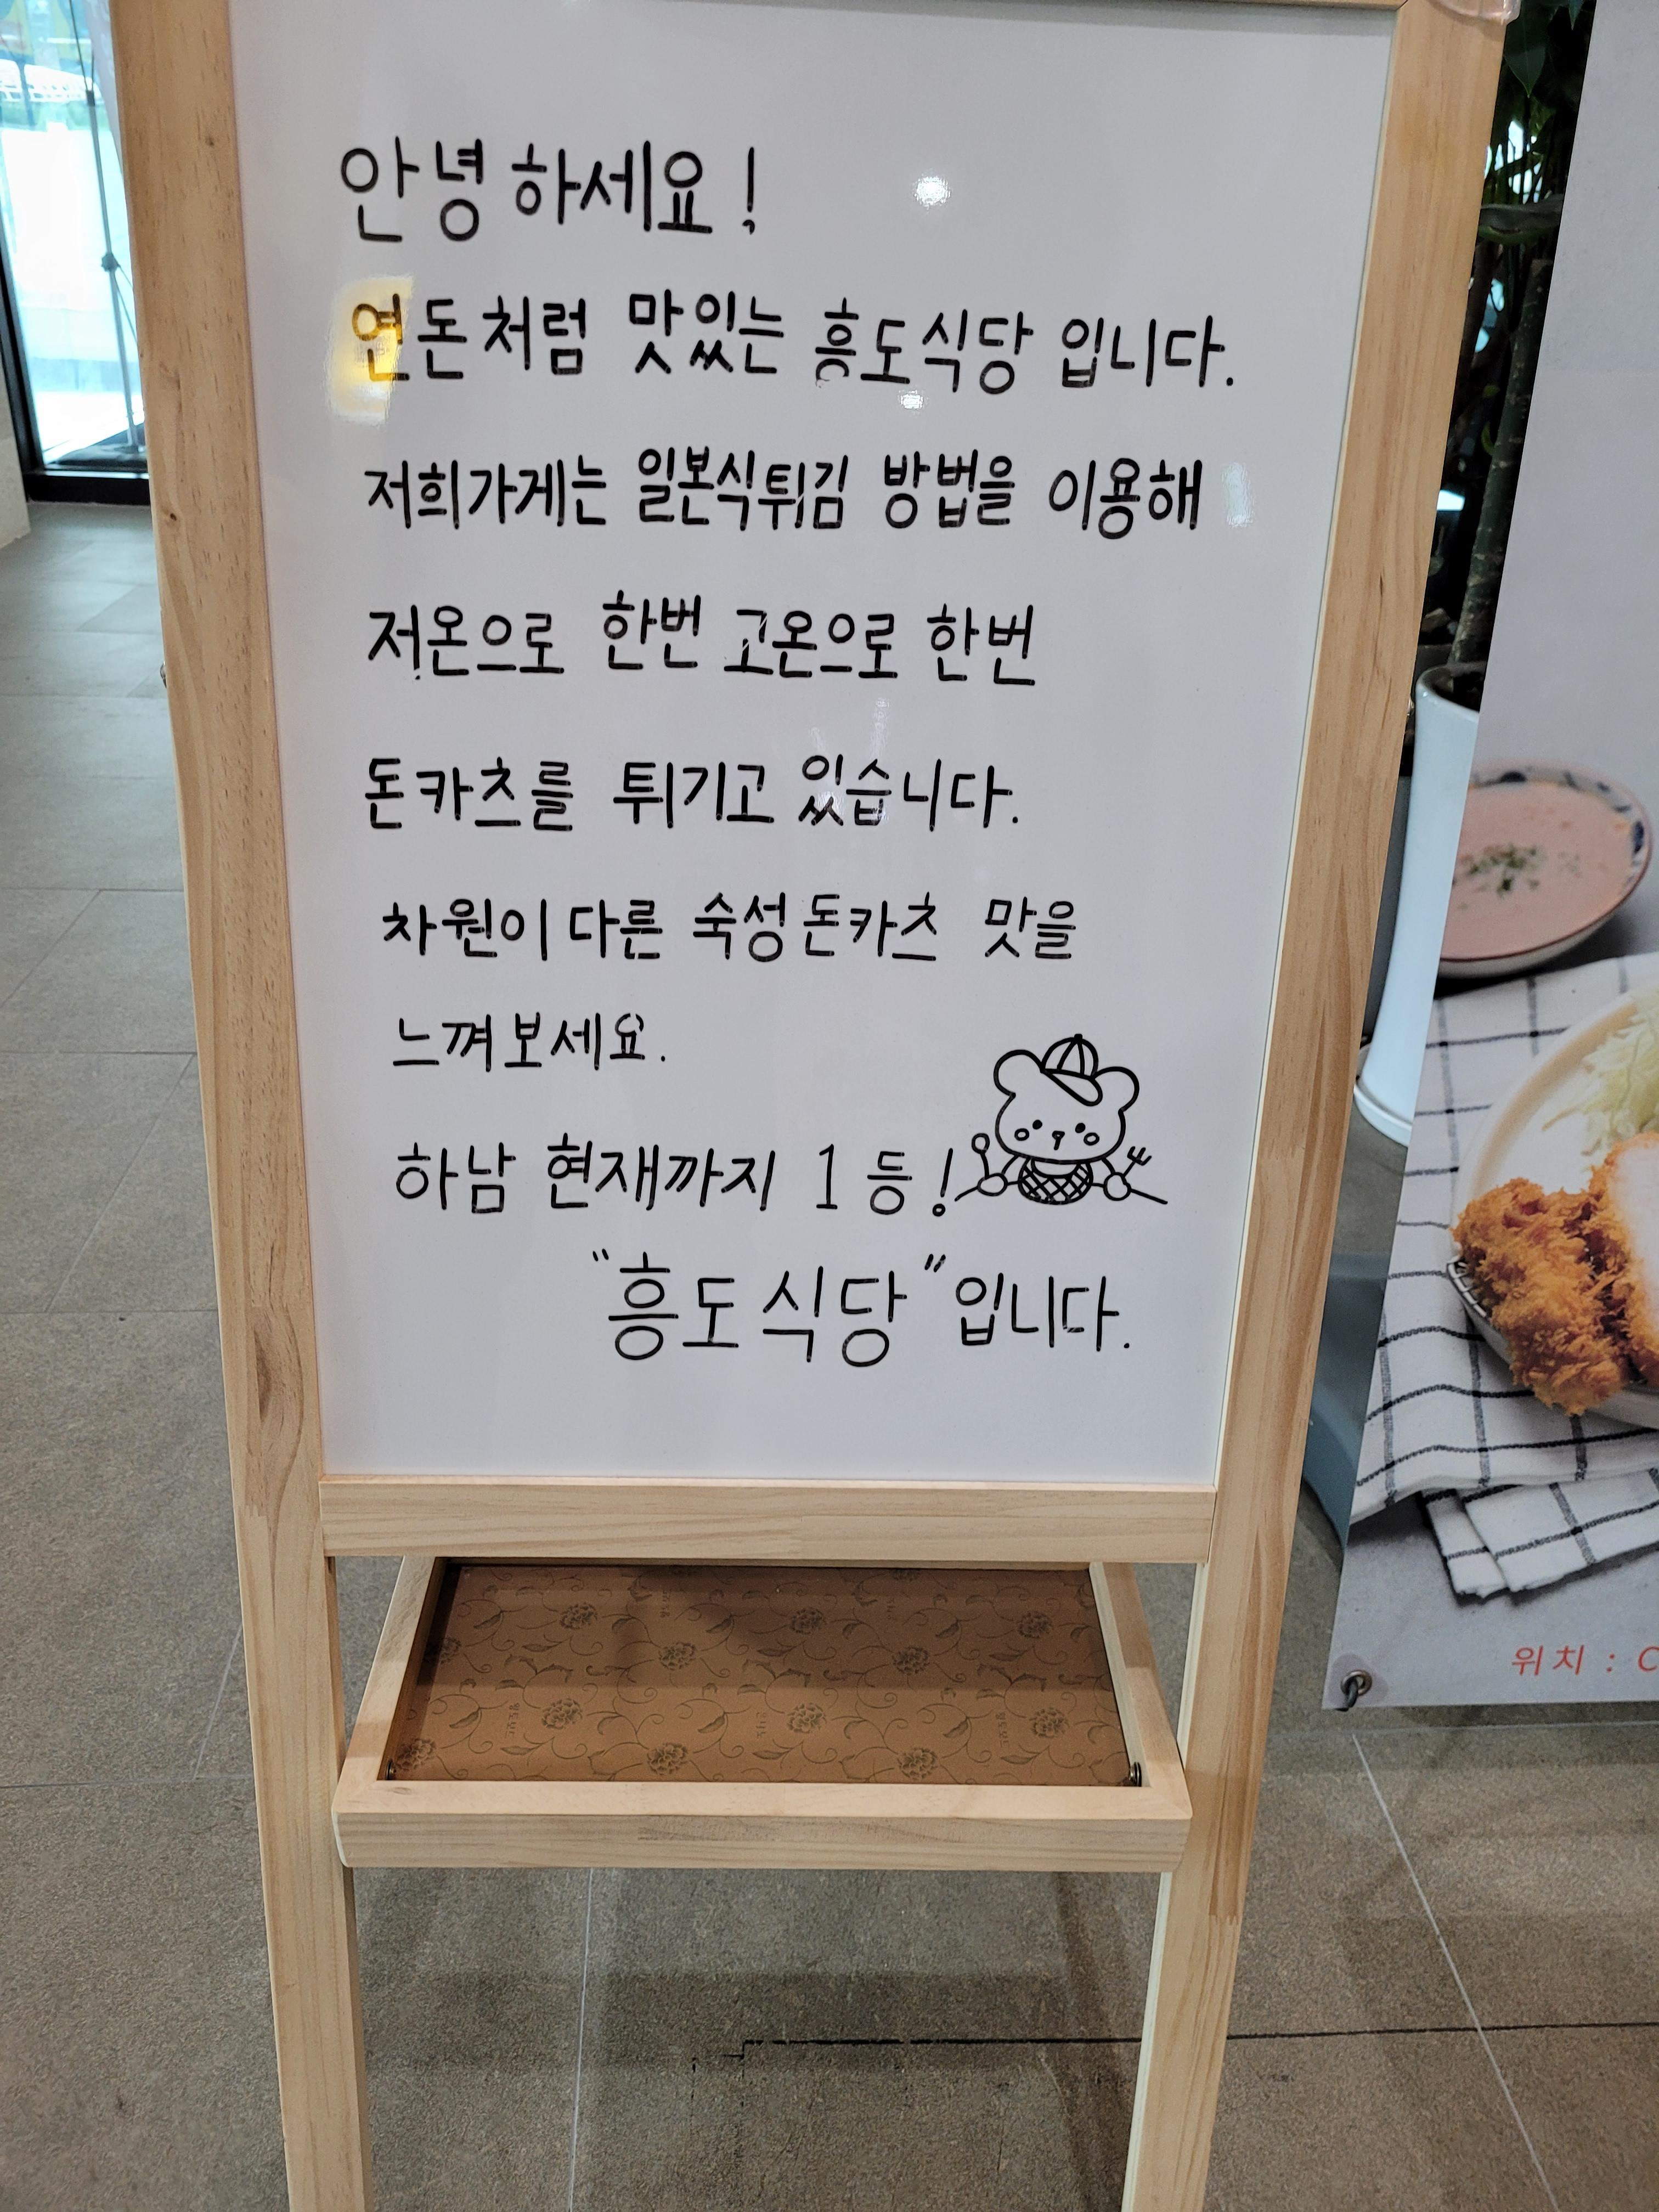 안녕하세요!
연돈처럼 맛있는 흥도식당 입니다.
저희가게는 일본식튀김 방법을 이용해
저온으로 한번 고온으로 한번
돈카츠를 튀기고 있습니다.
차원이 다른 숙성돈카츠 맛을
느껴보세요.
하남 현재까지 1등!
"흥도식당"입니다.
위치 : C